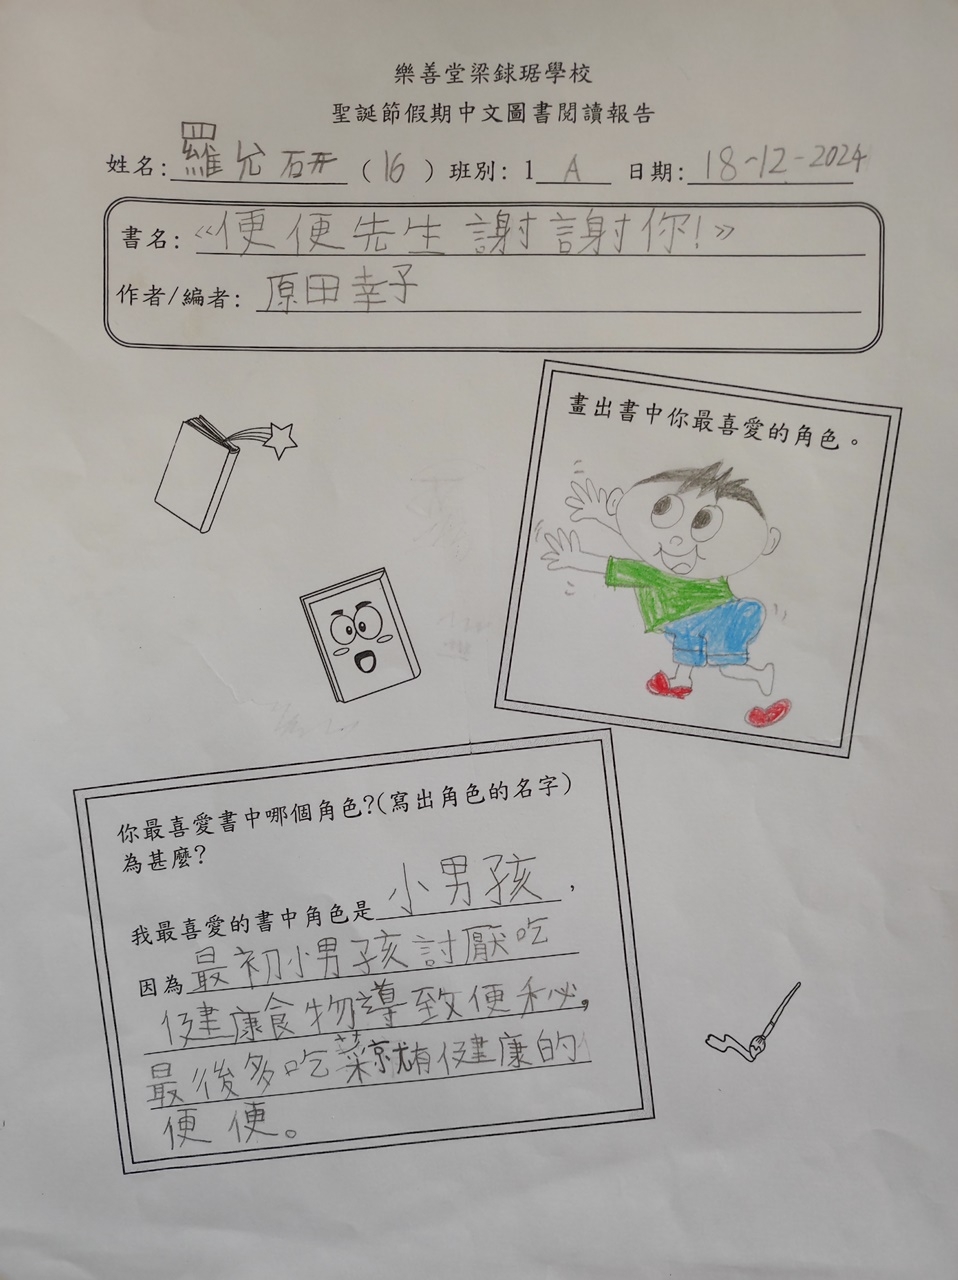 樂善堂梁銶琚學校
聖誕節假期中文圖書閱讀報告
姓名:羅允研(16)班別:1 A 日期:18-12-2024
書名:《便便先生謝謝你!》
作者/編者:原田幸子
畫出書中你最喜愛的角色。
你最喜愛書中哪個角色?(寫出角色的名字)
為甚麼?
我最喜愛的書中角色是小男孩,
因為最初小男孩討厭吃
健康食物導致便秘,
最後多吃菜就有健康的
便便。